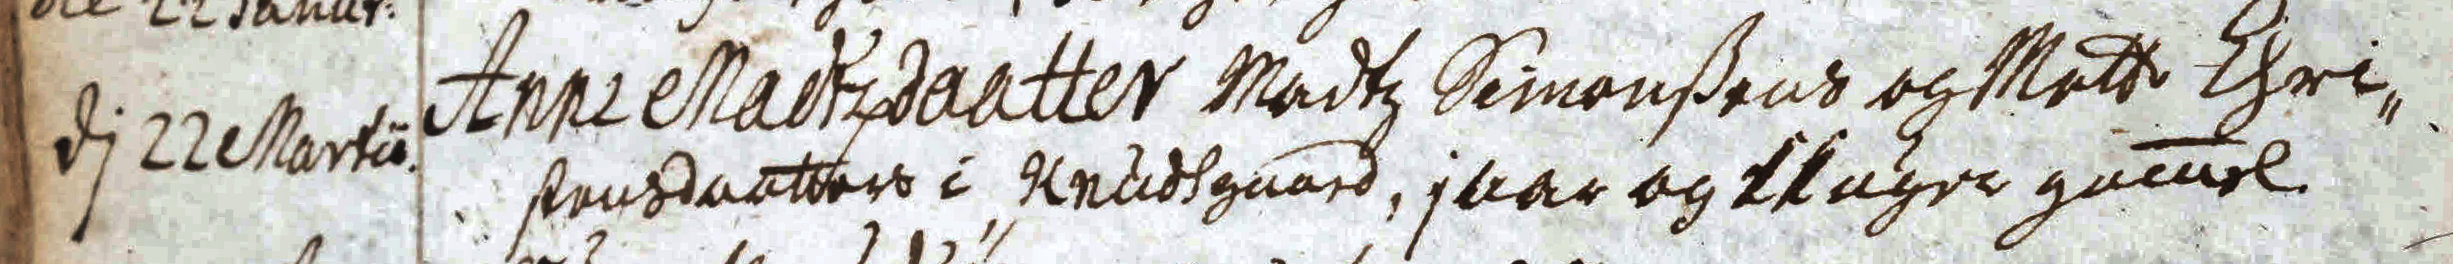 die 22 Januar:
dj 22 Martii. Anne Madtzdaatter Madtz Simonßens og Mette Chri„
stensdaatters i Knudsgaard, j aar og 11 uger gam̄el.